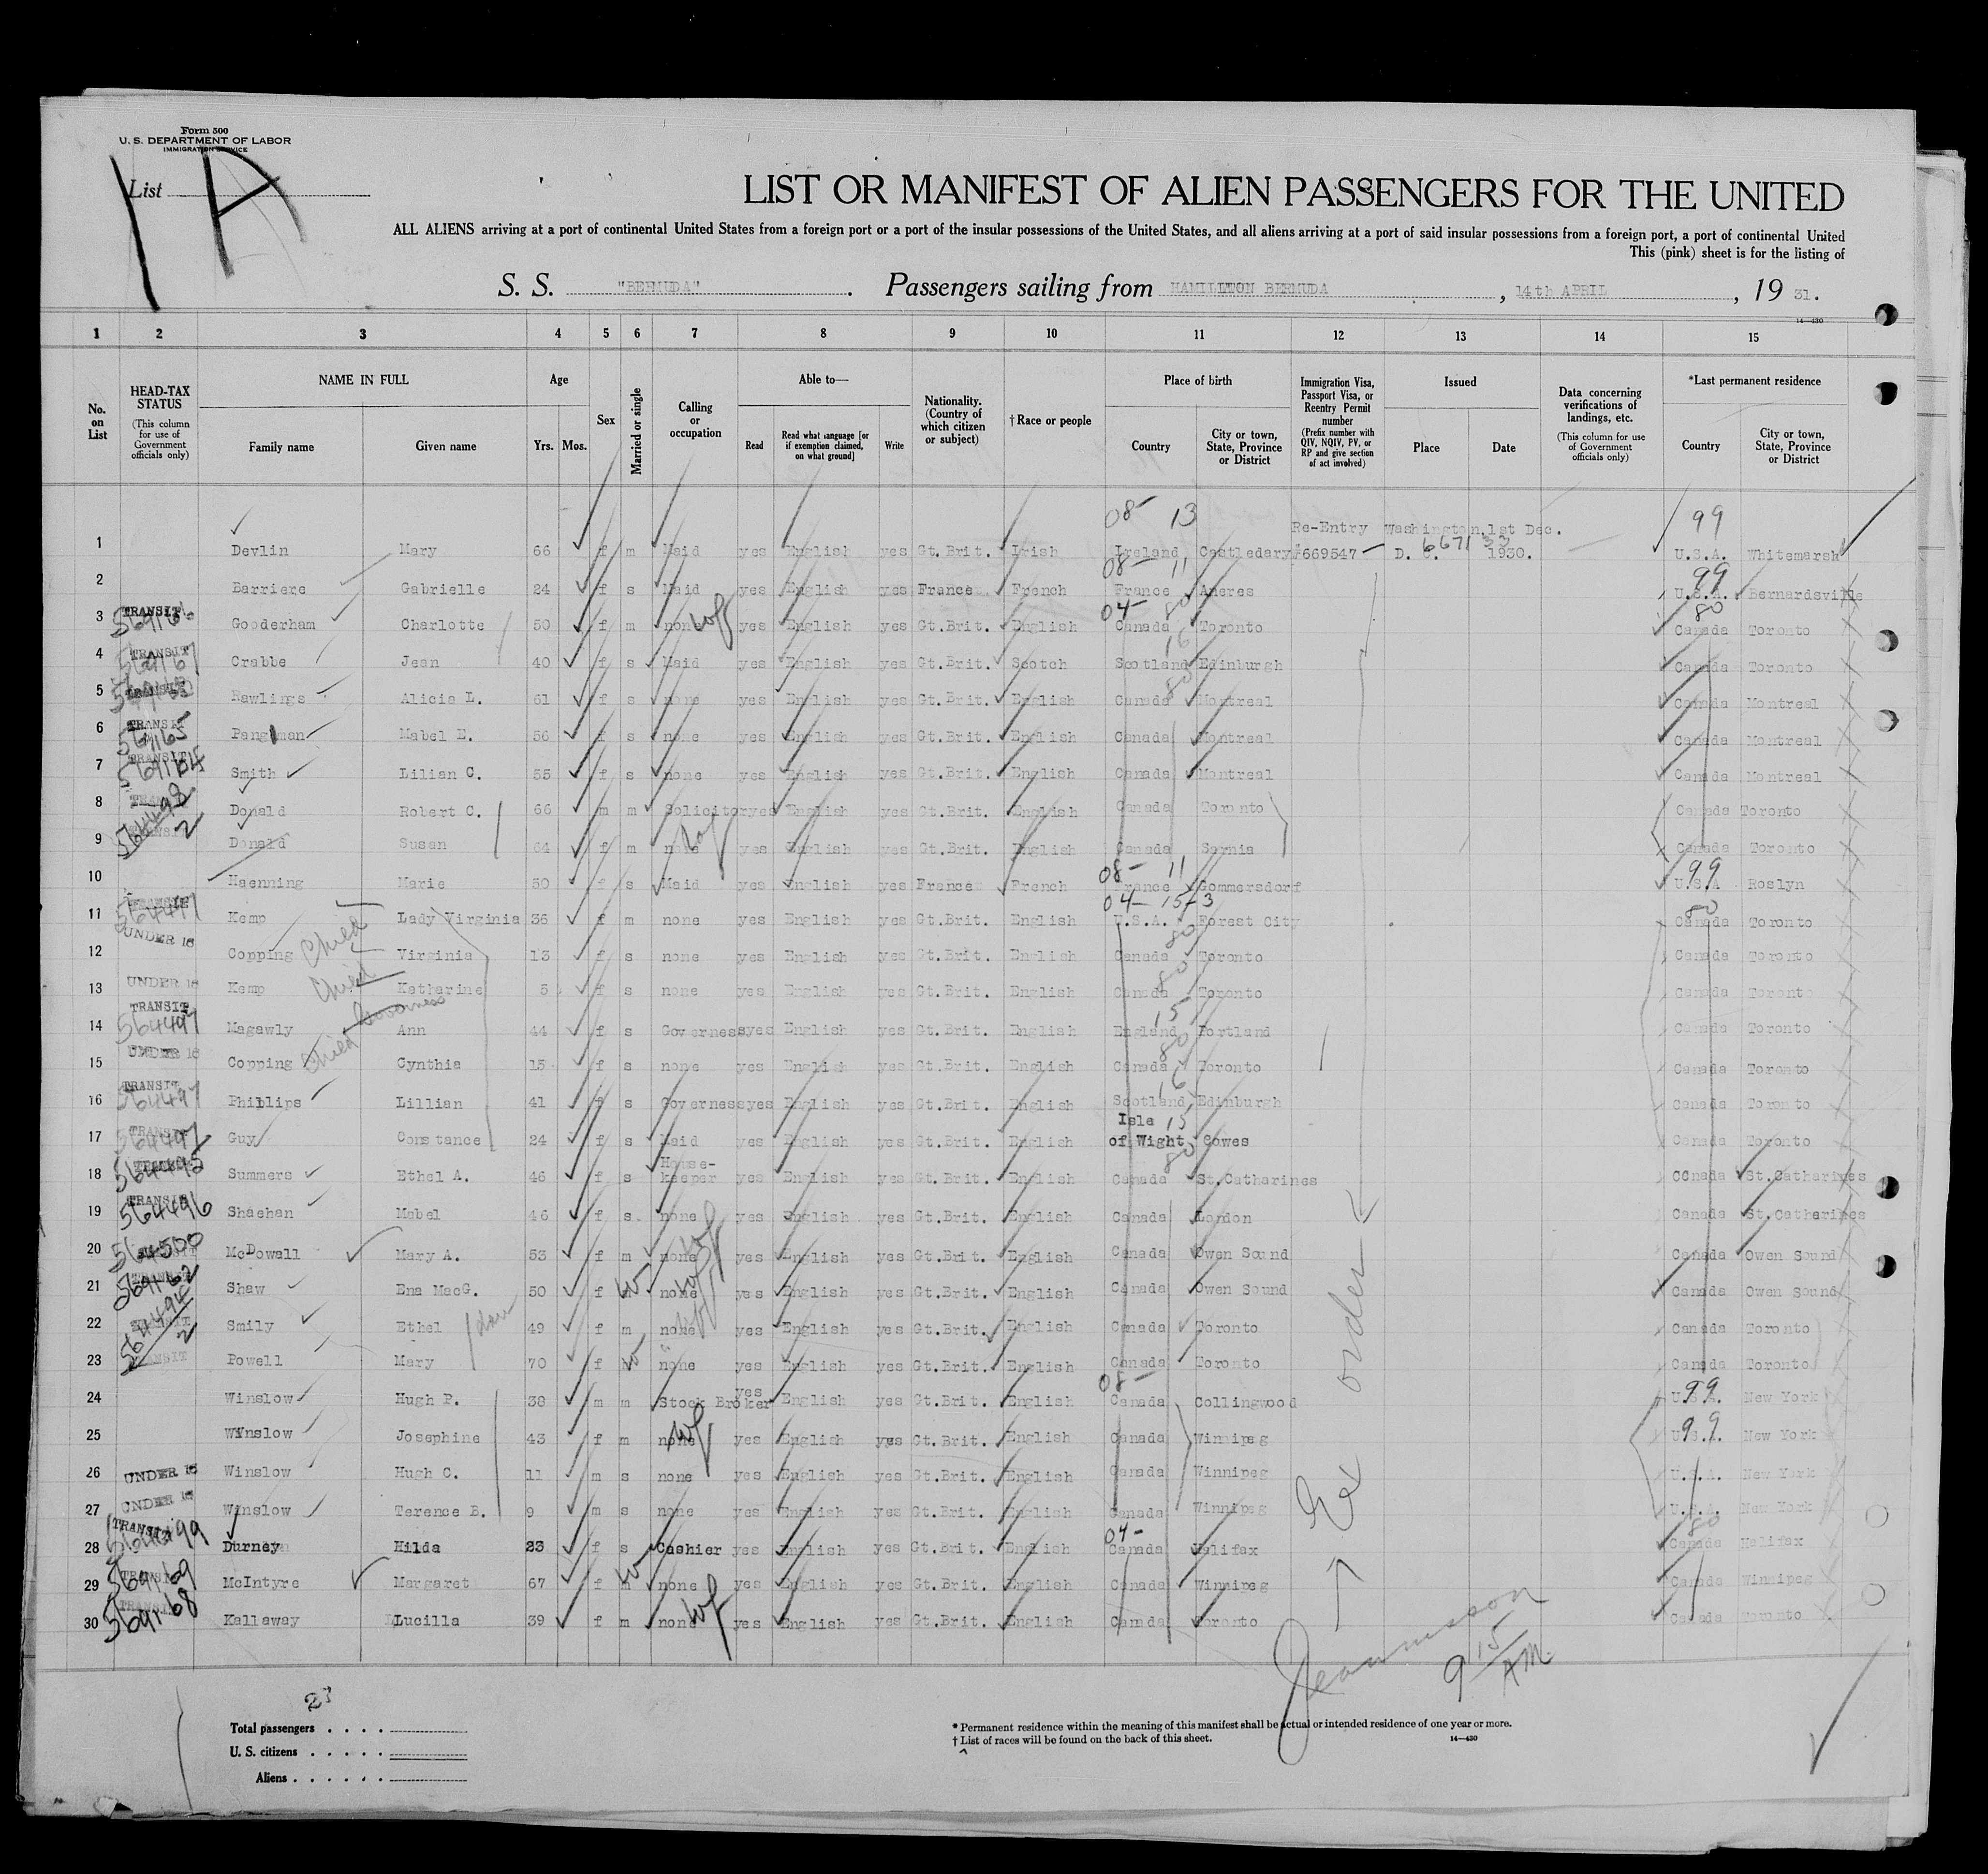 Form 500
U. S. DEPARTMENT OF LABOR
IMMIGRATION SERVICE
List 1A
LIST OR MANIFEST OF ALIEN PASSENGERS FOR THE UNITED
ALL ALIENS arriving at a port of continental United States from a foreign port or a port of the insular possessions of the United States, and all aliens arriving at a port of said insular possessions from a foreign port, a port of continental United
This (pink) sheet is for the listing of
S. S. "BERMUDA". Passengers sailing from HAMILTON BERMUDA, 14th APRIL, 1931.
14—430
1 2 3 4 5 6 7 8 9 10 11 12 13 14 15
No. on List
HEAD-TAX STATUS (This column for use of Government officials only)
NAME IN FULL Family name Given name
Age Yrs. Mos.
Sex
Married or single
Calling or occupation
Able to— Read Read what language [or if exemption claimed, on what ground] Write
Nationality. (Country of which citizen or subject)
†Race or people
Place of birth Country City or town, State, Province or District
Immigration Visa, Passport Visa, or Reentry Permit number (Prefix number with QIV, NQIV, PV, or RP and give section of act involved)
Issued Place Date
Data concerning verifications of landings, etc. (This column for use of Government officials only)
*Last permanent residence Country City or town, State, Province or District
08- 13 99
Re-Entry Washington, 1st Dec.
1 Devlin Mary 66 f m Maid yes English yes Gt.Brit. Irish Ireland Castledary 669547 D. C. 1930. U.S.A. Whitemarsh
08- 11 99
2 Barriere Gabrielle 24 f s Maid yes English yes France French France Aneres U.S.A. Bernardsville
04- 80 80
3 TRANSIT 569166 Gooderham Charlotte 50 f m none wf yes English yes Gt.Brit. English Canada Toronto Canada Toronto
4 TRANSIT 569167 Crabbe Jean 40 f s Maid yes English yes Gt.Brit. Scotch Scotland Edinburgh Canada Toronto
5 TRANSIT Rawlings Alicia L. 61 f s none yes English yes Gt.Brit. English Canada Montreal Canada Montreal
6 TRANSIT 569165 Pangman Mabel E. 56 f s none yes English yes Gt.Brit. English Canada Montreal Canada Montreal
7 TRANSIT 569164 Smith Lilian C. 55 f s none yes English yes Gt.Brit. English Canada Montreal Canada Montreal
8 TRANSIT 564498 Donald Robert C. 66 m m Solicitor yes English yes Gt.Brit. English Canada Toronto Canada Toronto
9 TRANSIT 2 Donald Susan 64 f m none wf yes English yes Gt.Brit. English Canada Sarnia Canada Toronto
08- 11 99
10 Haenning Marie 50 f s Maid yes English yes France French France Gommersdorf U.S.A Roslyn
04- 15-3 80
11 TRANSIT 564497 Kemp Lady Virginia 36 f m none yes English yes Gt.Brit. English U.S.A. Forest City Canada Toronto
12 UNDER 16 Copping Child Virginia 13 f s none yes English yes Gt.Brit. English Canada Toronto Canada Toronto
13 UNDER 16 Kemp Child Katharine 5 f s none yes English yes Gt.Brit. English Canada Toronto Canada Toronto
14 TRANSIT 564497 Magawly Governess Ann 44 f s Governess yes English yes Gt.Brit. English England Portland Canada Toronto
15 UNDER 16 Copping Child Cynthia 15 f s none yes English yes Gt.Brit. English Canada Toronto Canada Toronto
16 TRANSIT 564497 Phillips Lillian 41 f s Governess yes English yes Gt.Brit. English Scotland Edinburgh Canada Toronto
17 TRANSIT 564497 Guy Constance 24 f s Maid yes English yes Gt.Brit. English Isle of Wight Cowes Canada Toronto
18 TRANSIT 564495 Summers Ethel A. 46 f s House-keeper yes English yes Gt.Brit. English Canada St.Catharines Canada St.Catharines
19 TRANSIT 564496 Shaehan Mabel 46 f s. none yes English yes Gt.Brit. English Canada London Canada St.Catharines
20 TRANSIT 564500 McDowall Mary A. 53 f m none wf yes English yes Gt.Brit. English Canada Owen Sound Canada Owen Sound
21 569162 Shaw Ena MacG. 50 f w none yes English yes Gt.Brit. English Canada Owen Sound Canada Owen Sound
22 TRANSIT 564494 Smily Ethel 49 f m none wf yes English yes Gt.Brit. English Canada Toronto Canada Toronto
23 TRANSIT 2 Powell Mary 70 f w none yes English yes Gt.Brit. English Canada Toronto Canada Toronto
08- 99
24 Winslow Hugh P. 38 m m Stock Broker yes English yes Gt.Brit. English Canada Collingwood U.S.A. New York
25 Winslow Josephine 43 f m none wf yes English yes Gt.Brit. English Canada Winnipeg U.S.A. New York
26 UNDER 16 Winslow Hugh C. 11 m s none yes English yes Gt.Brit. English Canada Winnipeg U.S.A. New York
27 UNDER 16 Winslow Terence B. 9 m s none yes English yes Gt.Brit. English Canada Winnipeg U.S.A. New York
04- 80
28 TRANSIT 564499 Durney Hilda 23 f s Cashier yes English yes Gt.Brit. English Canada Halifax Canada Halifax
29 TRANSIT 569169 McIntyre Margaret 67 f w none yes English yes Gt.Brit. English Canada Winnipeg Canada Winnipeg
30 TRANSIT 569168 Kallaway Lucilla 39 f m none wf yes English yes Gt.Brit. English Canada Toronto Canada Toronto
Ex order
9 15 AM.
23
Total passengers
U. S. citizens
Aliens
* Permanent residence within the meaning of this manifest shall be actual or intended residence of one year or more.
† List of races will be found on the back of this sheet.
14—430